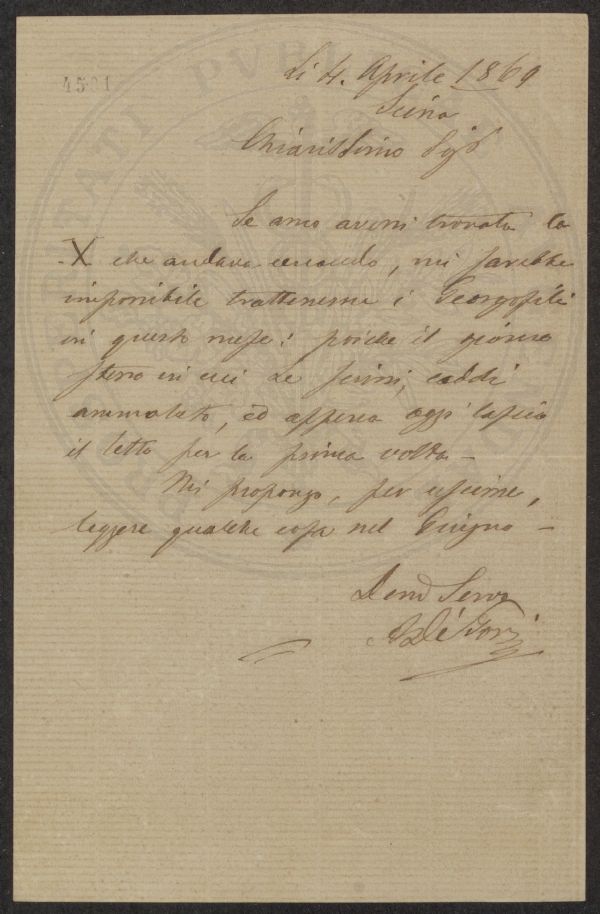 4501
PROSPERITATI PVBLICAE
Li 4. Aprile 1869
Siena
Chiarissimo Sigr
Se anco avessi trovata la
X che andava cercando, mi sarebbe
impossibile trattenerne i Georgofili
in questo mese: poiché il giorno
stesso in cui Le scrissi, caddi
ammalato, ed appena oggi lascio
il letto per la prima volta –
Mi propongo, per uscirne,
leggere qualche cosa nel Giugno –
Devo Servo